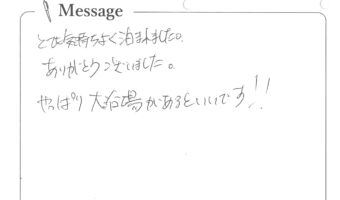 Message
とても気持ちよく泊まれました。
ありがとうございました。
やっぱり大浴場があるといいです!!